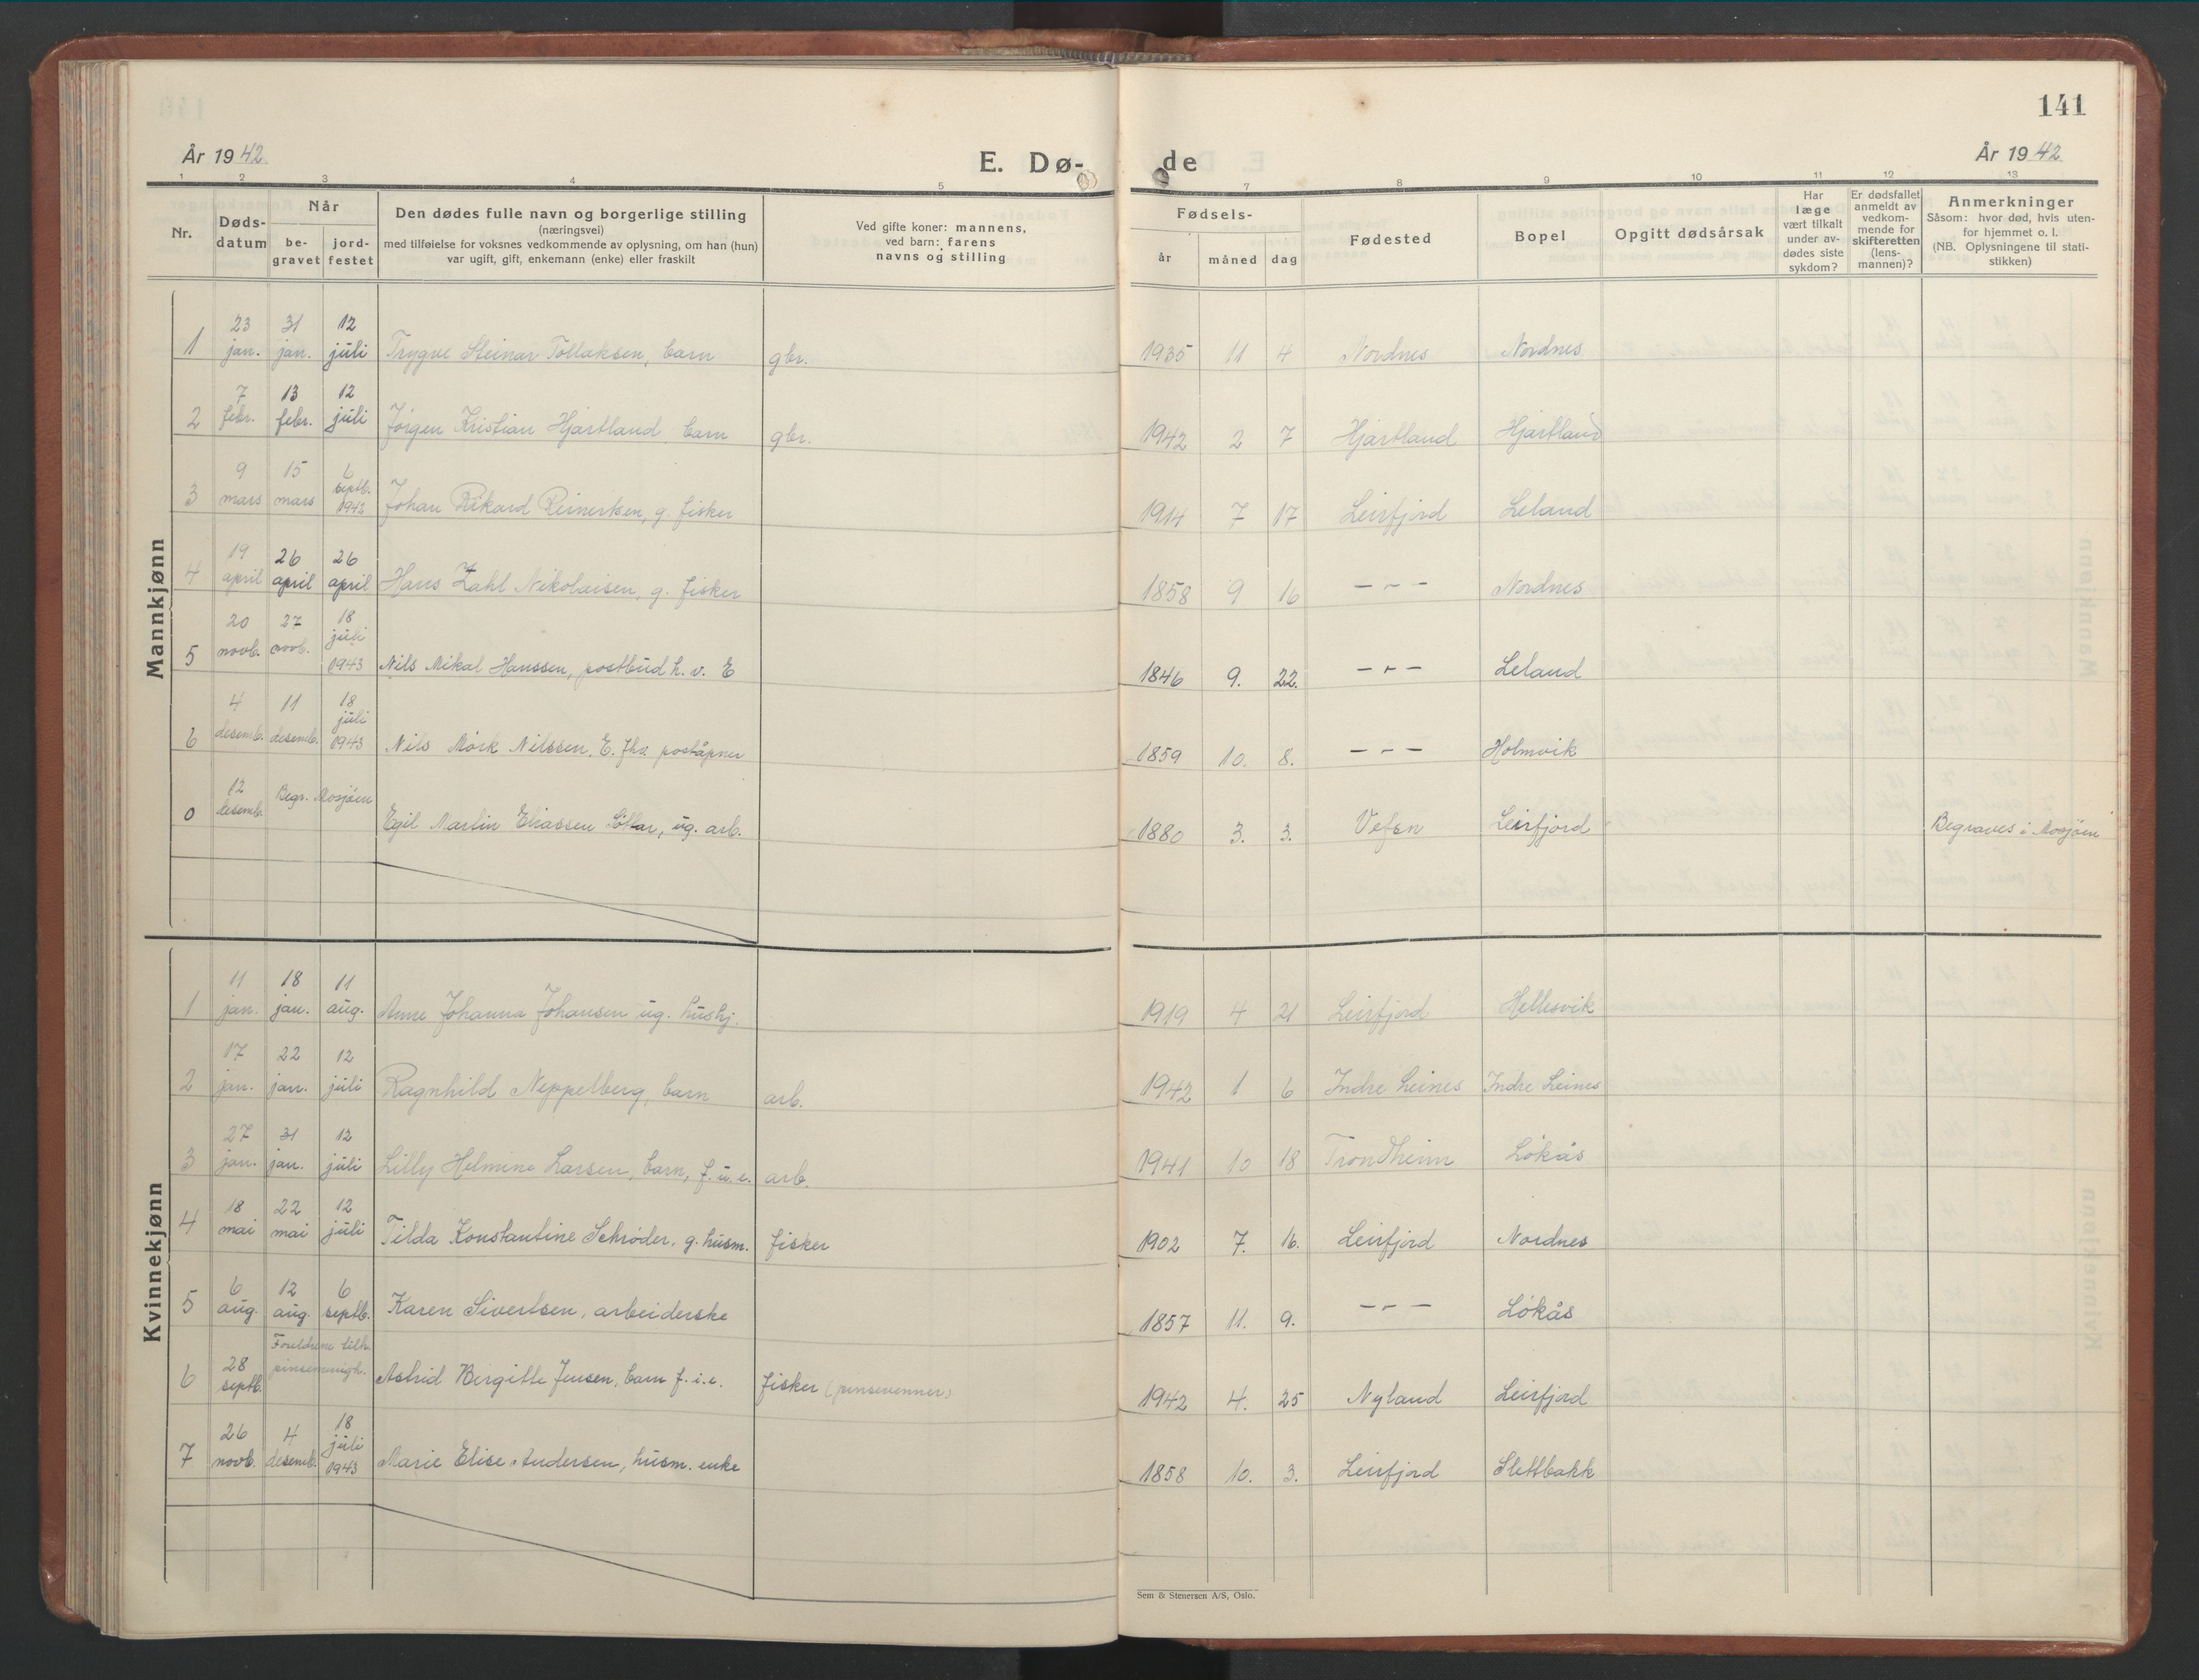 141
År 1942
E. Dø-
de
År 1942
1 2 3 4 5 7 8 9 10 11 12 13
Nr.
Døds-
datum
Når
be-
gravet
jord-
festet
Den dødes fulle navn og borgerlige stilling
(næringsvei)
med tilføielse for voksnes vedkommende av oplysning, om han (hun)
var ugift, gift, enkemann (enke) eller fraskilt
Ved gifte koner: mannens,
ved barn: farens
navns og stilling
Fødsels-
år måned dag
Fødested
Bopel
Opgitt dødsårsak
Har
læge
vært tilkalt
under av-
dødes siste
sykdom?
Er dødsfallet
anmeldt av
vedkom-
mende for
skifteretten
(lens-
mannen)?
Anmerkninger
Såsom: hvor død, hvis uten-
for hjemmet o. l.
(NB. Oplysningene til stati-
stikken)
Mannkjønn
1 23 jan. 31 jan. 12 juli Trygve Steinar Tollaksen, barn gbr. 1935 11 4 Nordnes Nordnes
2 7 febr. 13 febr. 12 juli Jørgen Kristian Hjartland, barn gbr. 1942 2 7 Hjartland Hjartland
3 9 mars 15 mars 6 septb. 1942 Johan Rikard Reinertsen, g. fisker 1914 7 17 Leirfjord Leland
4 19 april 26 april 26 april Hans Zahl Nikolaisen, g. fisker 1858 9 16 – – – Nordnes
5 20 novb. 27 novb. 18 juli 1943 Nils Mikal Hanssen, postbud h. v. E 1846 9. 22. – – – Leland
6 4 desemb. 11 desemb. 18 juli 1943 Nils Mørk Nilssen, E. fhv. poståpner 1859 10. 8. – – – Holmvik
0 12 desemb. Begr. Mosjøen Egil Martin Eliassen Sottar, ug. arb. 1880 3. 3. Vefsn Leirfjord Begraves i Mosjøen
Kvinnekjønn
1 11 jan. 18 jan. 11 aug. Anne Johanna Johansen ug. hushj. 1919 4 21 Leirfjord Hellesvik
2 17 jan. 22 jan. 12 juli Ragnhild Neppelberg, barn arb. 1942 1 6 Indre Leines Indre Leines
3 27 jan. 31 jan. 12 juli Lilly Helmine Larsen, barn, f. u. e. arb. 1941 10 18 Trondheim Løkås
4 18 mai 22 mai 12 juli Tilda Konstantine Schrøder, g. husm. fisker 1902 7. 16. Leirfjord Nordnes
5 6 aug. 12 aug. 6 septb. Karen Sivertsen, arbeiderske 1857 11. 9. – – – Løkås
6 28 septb. Foreldrene tilh. pinsemenigh. Astrid Birgitte Jensen, barn f. i. e. fisker (pinsevenner) 1942 4. 25 Nyland Leirfjord
7 26 novb. 4 desemb. 18 juli 1943 Marie Elise Andersen, husm. enke 1858 10. 3. Leirfjord Slettbakk
Sem & Stenersen A/S, Oslo.